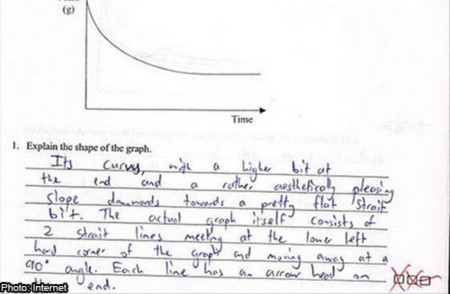 (g)
Time
1. Explain the shape of the graph.
Its curvy, with a higher bit at
the end and a rather aesthetically pleasing
slope downwards towards a pretty flat strait
bit. The actual graph itself consists of
2 strait lines meeting at the lower left
hand corner of the graph and moving away at a
90° angle. Each line has an arrow head on
the end.
Photo: Internet